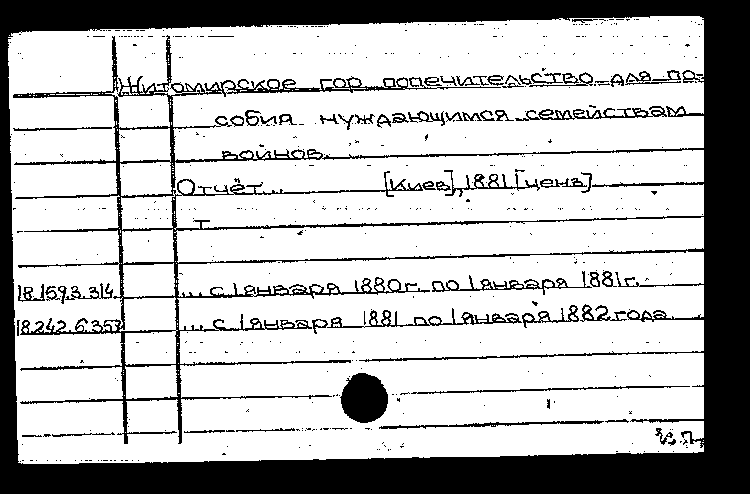 Житомирское гор попечительство для по-
собия нуждающимся семействам
воинов.
Отчёт... [Киев], 1881 [ценз]
т
18.159.3.314. ... с 1 января 1880г. по 1 января 1881г.
18.242.6.353 ... с 1 января 1881 по 1 января 1882 года